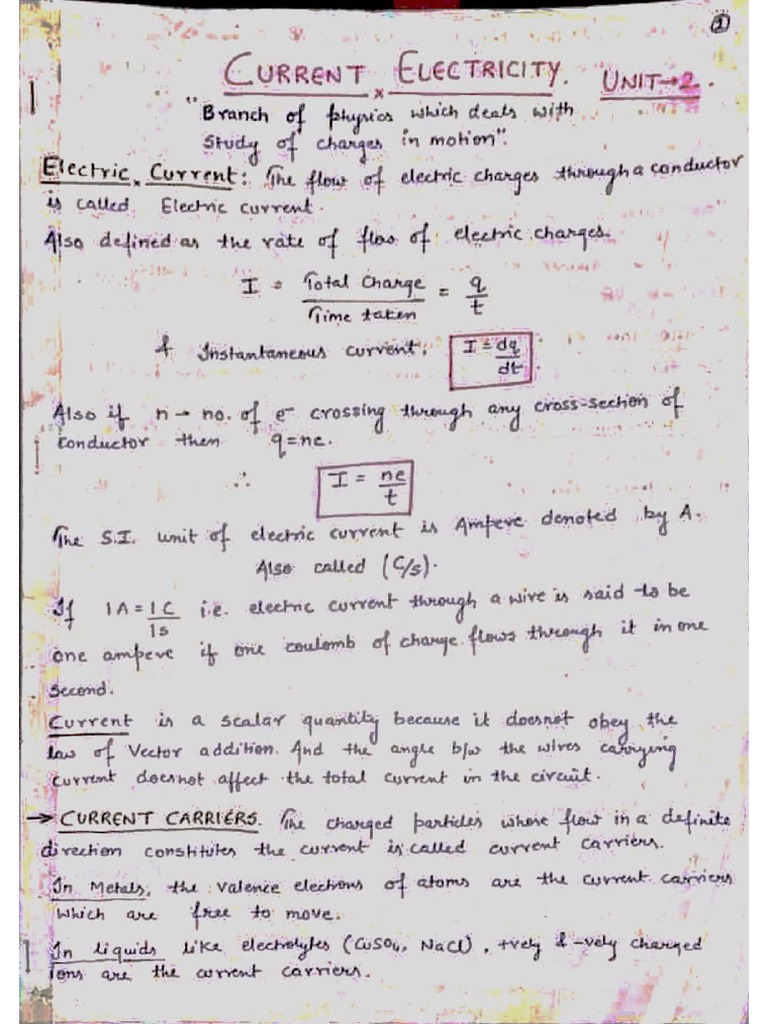 1
CURRENT ELECTRICITY. UNIT→2.
"Branch of physics which deals with
study of charges in motion".
Electric Current: The flow of electric charges through a conductor
is called Electric current.
Also defined as the rate of flow of electric charges.
I = Total Charge / Time taken = q/t
& Instantaneous current. I = dq/dt.
Also if n → no. of e⁻ crossing through any cross-section of
conductor then q=ne.
∴ I = ne/t
The S.I. unit of electric current is Ampere denoted by A.
Also called (C/s).
If 1A = 1C/1s i.e. electric current through a wire is said to be
one ampere if one coulomb of charge flows through it in one
second.
Current is a scalar quantity because it doesnot obey the
law of Vector addition. And the angle b/w the wires carrying
current doesnot affect the total current in the circuit.
→ CURRENT CARRIERS. The charged particles whose flow in a definite
direction constitutes the current is called current carriers.
In Metals, the valence electrons of atoms are the current carriers
which are free to move.
In liquids like electrolytes (CuSO4, NaCl), +vely & -vely charged
ions are the current carriers.